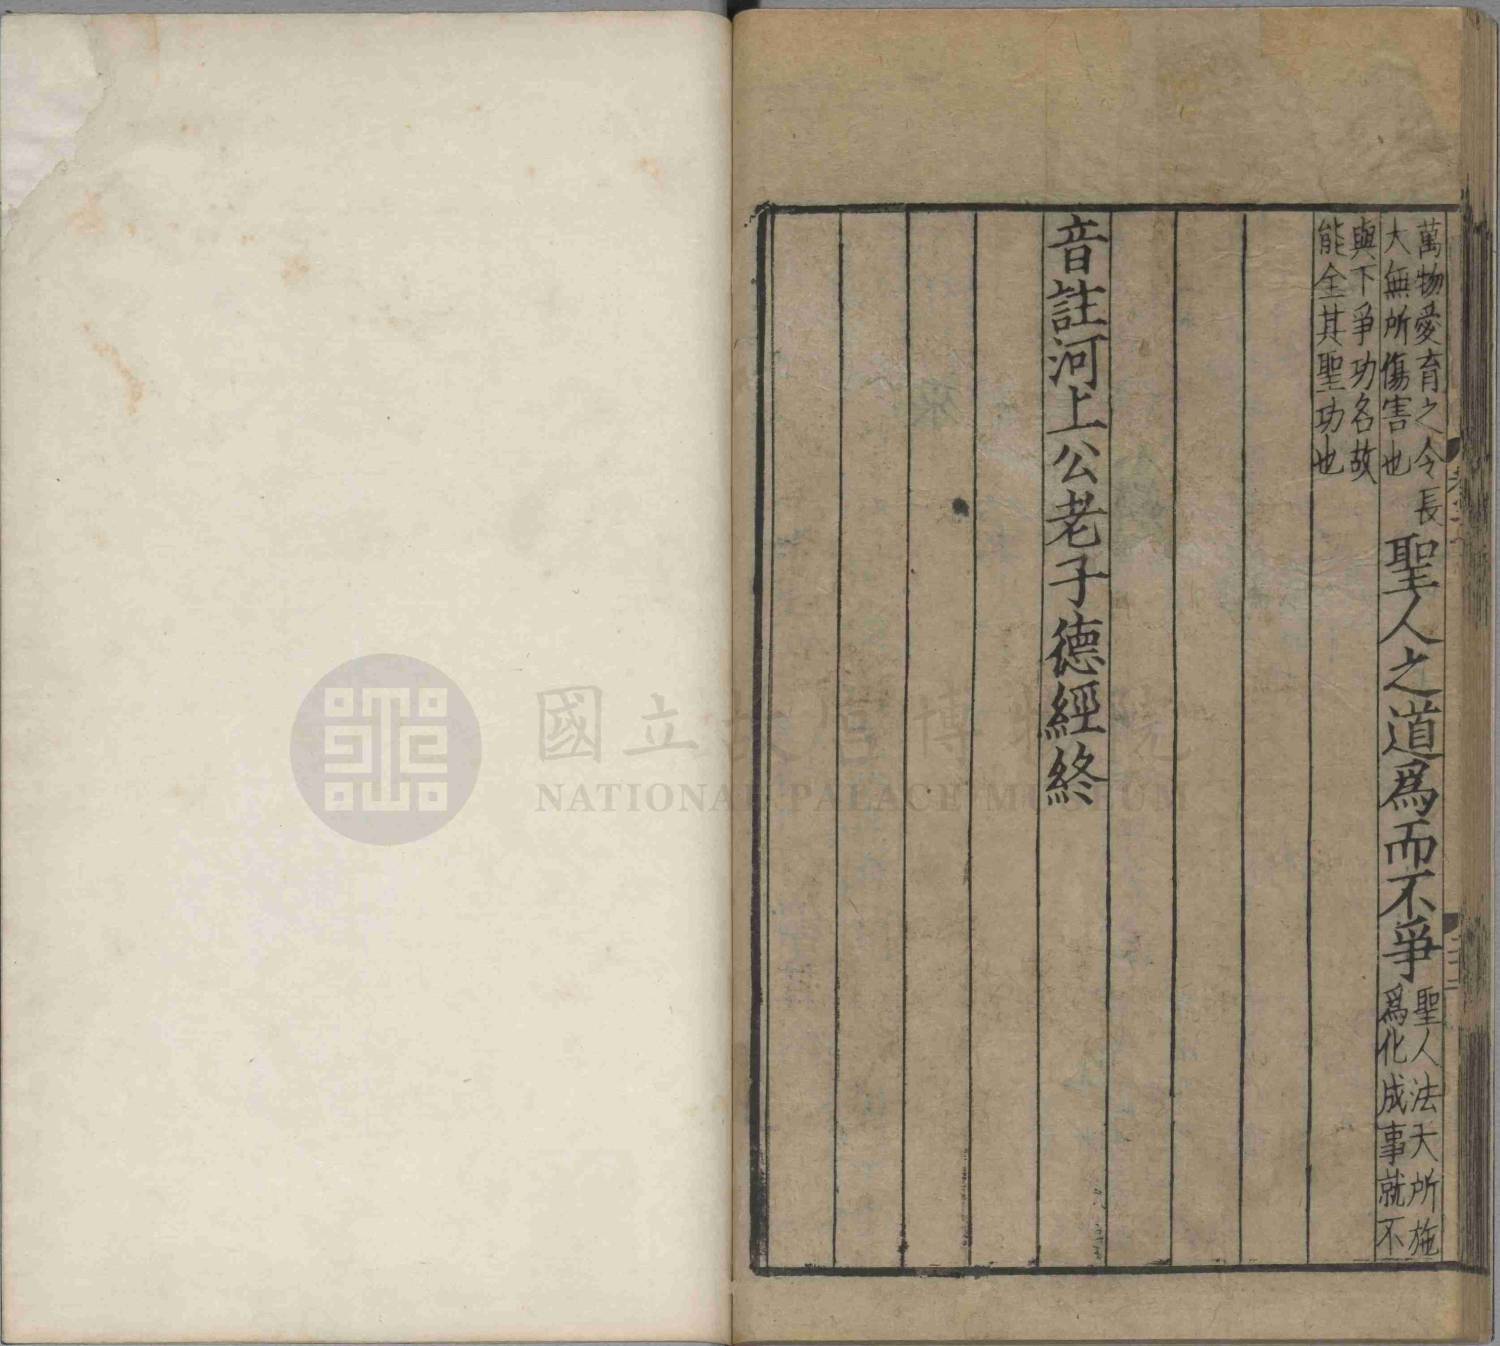 萬物愛育之令長
大無所傷害也
聖人之道爲而不爭
聖人法天所施
爲化成事就不
與下爭功名故
能全其聖功也
音註河上公老子德經終
國立故宮博物院
NATIONAL PALACE MUSEUM